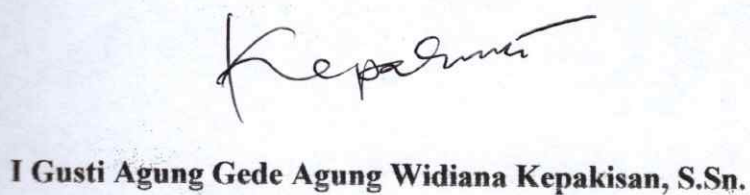 Kepakisan
I Gusti Agung Gede Agung Widiana Kepakisan, S.Sn.